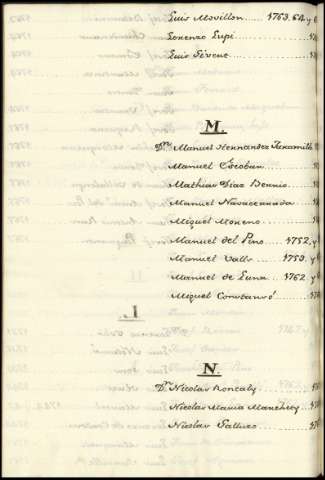 Luis Movillon 1763, 64, y
Lorenzo Lupi
Luis Sirene
M.
Dn. Manuel Hernandez Jaramillo
Manuel Escobar
Mathias Diaz Benuio
Manuel Navacerrada
Miguel Moreno
Manuel del Pino 1752, y
Manuel Valls 1750, y
Manuel de Luna 1762 y
Miguel Constanró
N.
Dn. Nicolas Roncaly
Nicolas Maria Mancheey
Nicolas